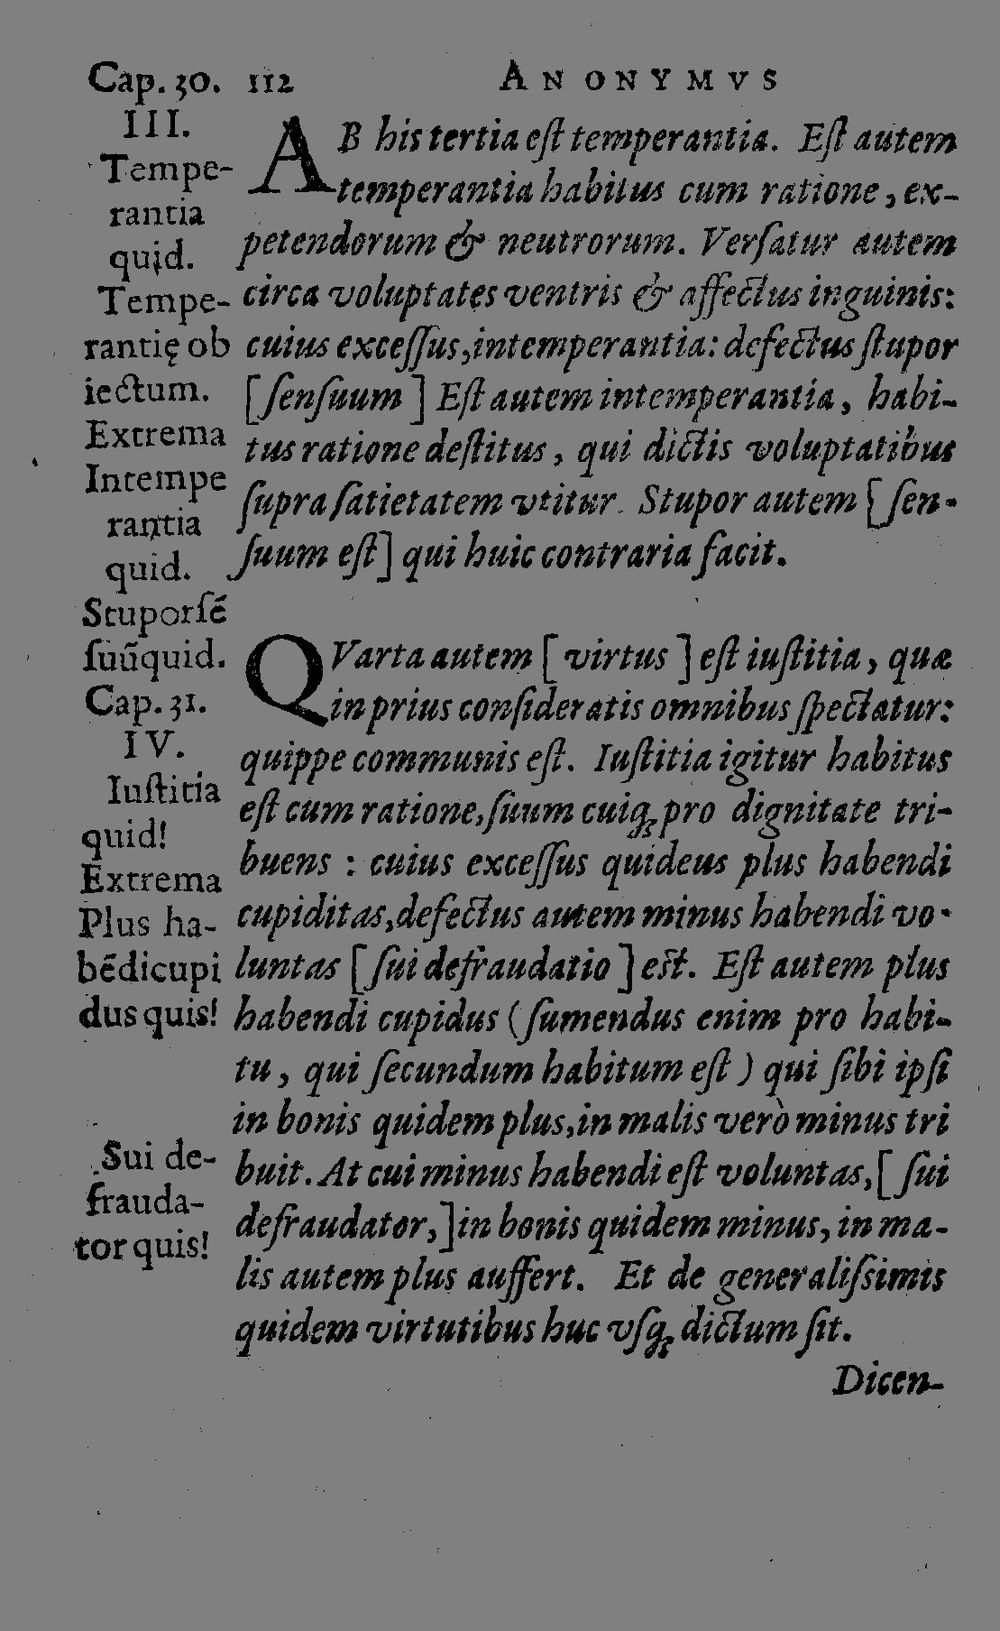 Cap. 30. 112 ANONYMVS
III.
Tempe-
rantia
quid.
Tempe-
rantię ob
iectum.
Extrema
Intempe
rantia
quid.
Stupor sē
suū quid.
Cap. 31.
IV.
Iustitia
quid!
Extrema
Plus ha-
bēdi cupi
dus quis!
Sui de-
frauda-
tor quis!
AB his tertia eſt temperantia. Eſt autem
temperantia habitus cum ratione, ex-
petendorum & neutrorum. Verſatur autem
circa voluptates ventris & affectus inguinis:
cuius exceſſus, intemperantia: defectus ſtupor
[ ſenſuum ] Eſt autem intemperantia, habi-
tus ratione deſtitus, qui dictis voluptatibus
ſupra ſatietatem vtitur. Stupor autem [ ſen-
ſuum eſt] qui huic contraria facit.
QVarta autem [ virtus ] eſt iuſtitia, quæ
in prius conſideratis omnibus ſpectatur:
quippe communis eſt. Iuſtitia igitur habitus
eſt cum ratione, ſuum cuiq; pro dignitate tri-
buens : cuius exceſſus quideus plus habendi
cupiditas, defectus autem minus habendi vo-
luntas [ ſui defraudatio ] eſt. Eſt autem plus
habendi cupidus (ſumendus enim pro habi-
tu, qui ſecundum habitum eſt ) qui ſibi ipſi
in bonis quidem plus, in malis verò minus tri
buit. At cui minus habendi eſt voluntas, [ ſui
defraudator,] in bonis quidem minus, in ma-
lis autem plus auffert. Et de generaliſsimis
quidem virtutibus huc vſq; dictum ſit.
Dicen-